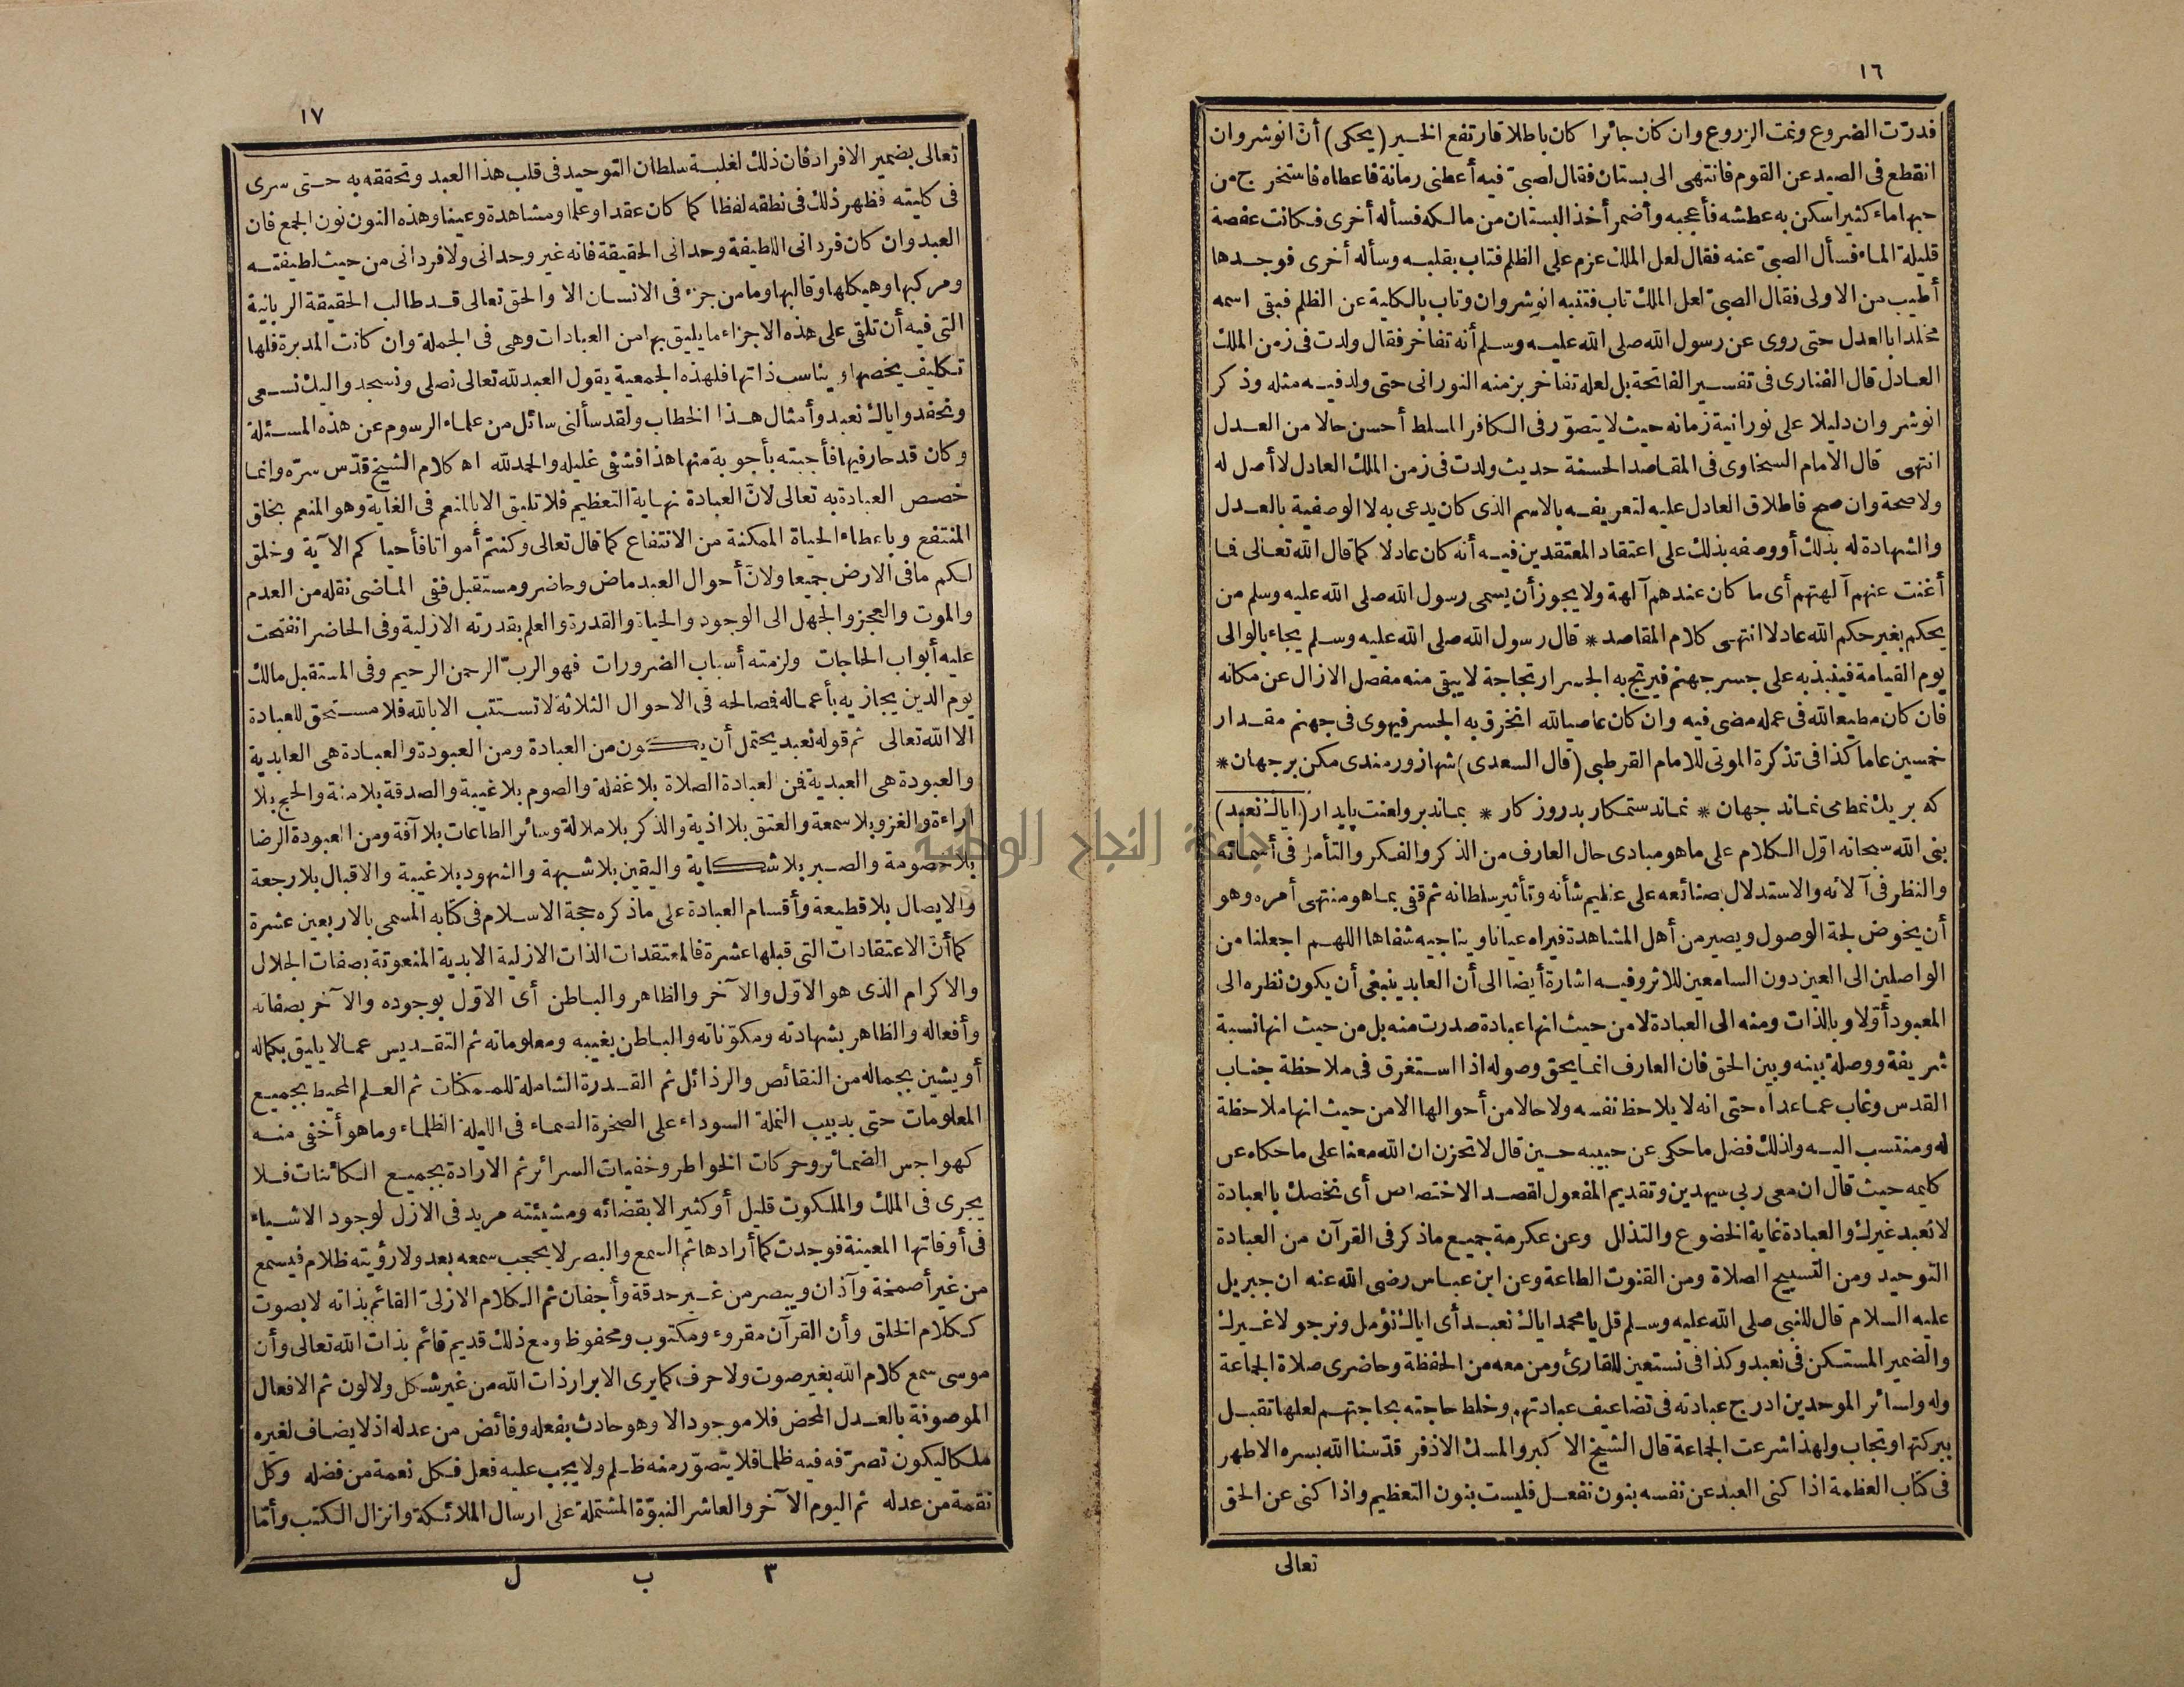 ١٦
فدرّت الضروع ونمت الزروع وان كان جائرا كان باطلا فارتفع الخير (يحكى) أن انوشروان
انقطع فى الصيد عن القوم فانتهى الى بستان فقال لصبىّ فيه أعطنى رمانة فاعطاه فاستخرج من
حبها ماء كثيرا سكن به عطشه فأعجبه وأضمر أخذ البستان من مالكه فسأله أخرى فكانت عفصة
قليلة الماء فسأل الصبىّ عنه فقال لعل الملك عزم على الظلم فتاب بقلبه وسأله أخرى فوجدها
أطيب من الاولى فقال الصبىّ لعل الملك تاب فتنبه انوشروان وتاب بالكلية عن الظلم فبقى اسمه
مخلدا بالعدل حتى روى عن رسول الله صلى الله عليه وسلم أنه تفاخر فقال ولدت فى زمن الملك
العادل قال الفنارى فى تفسير الفاتحة بل لعله تفاخر بزمنه النورانى حتى ولد فيه مثله وذكر
انوشروان دليلا على نورانية زمانه حيث لا يتصوّر فى الكافر المسلط أحسن حالا من العدل
انتهى قال الامام السخاوى فى المقاصد الحسنة حديث ولدت فى زمن الملك العادل لا أصل له
ولا صحة وان صح فاطلاق العادل عليه لتعريفه بالاسم الذى كان يدعى به لا الوصفية بالعدل
والشهادة له بذلك أو وصفه بذلك على اعتقاد المعتقدين فيه أنه كان عادلا كما قال الله تعالى فما
أغنت عنهم آلهتهم أى ما كان عندهم آلهة ولا يجوز أن يسمى رسول الله صلى الله عليه وسلم من
يحكم بغير حكم الله عادلا انتهى كلام المقاصد * قال رسول الله صلى الله عليه وسلم يجاء بالوالى
يوم القيامة فينبذ به على جسر جهنم فيرتج به الجسر ارتجاجة لا يبقى منه مفصل الازال عن مكانه
فان كان مطيعا لله فى عمله مضى فيه وان كان عاصيا لله انخرق به الجسر فيهوى فى جهنم مقدار
خمسين عاما كذا فى تذكرة الموتى للامام القرطبى (قال السعدى) شها زورمندى مكن برجهان *
كه بريك نمط مى نماند جهان * نماند ستمكار بدروزكار * بماند برو لعنت پايدار (اياك نعبد)
بنى الله سبحانه اوّل الكلام على ما هو مبادى حال العارف من الذكر والفكر والتأمل فى أسمائه
والنظر فى آلائه والاستدلال بصنائعه على عظيم شأنه وتأثير سلطانه ثم قفى بما هو منتهى أمره وهو
أن يخوض لجة الوصول ويصير من أهل المشاهدة فيراه عيانا ويناجيه شفاها اللهم اجعلنا من
الواصلين الى العين دون السامعين للاثر وفيه اشارة أيضا الى أن العابد ينبغى أن يكون نظره الى
المعبود أوّلا وبالذات ومنه الى العبادة لا من حيث انها عبادة صدرت منه بل من حيث انها نسبة
شريفة ووصلة بينه وبين الحق فان العارف انما يحق وصوله اذا استغرق فى ملاحظة جناب
القدس وغاب عما عداه حتى انه لا يلاحظ نفسه ولا حالا من أحوالها الا من حيث انها ملاحظة
له ومنتسب اليه ولذلك فضل ما حكى عن حبيبه حين قال لا تحزن ان الله معنا على ما حكاه عن
كليمه حيث قال ان معى ربى سيهدين وتقديم المفعول لقصد الاختصاص أى نخصك بالعبادة
لا نعبد غيرك والعبادة غاية الخضوع والتذلل وعن عكرمة جميع ما ذكر فى القرآن من العبادة
التوحيد ومن التسبيح الصلاة ومن القنوت الطاعة وعن ابن عباس رضى الله عنه ان جبريل
عليه السلام قال للنبى صلى الله عليه وسلم قل يا محمد اياك نعبد أى اياك نؤمل ونرجو لا غيرك
والضمير المستكن فى نعبد وكذا فى نستعين للقارئ ومن معه من الحفظة وحاضرى صلاة الجماعة
وله ولسائر الموحدين ادرج عبادته فى تضاعيف عبادتهم وخلط حاجته بحاجتهم لعلها تقبل
ببركتها وتجاب ولهذا شرعت الجماعة قال الشيخ الاكبر والمسك الاذفر قدّسنا الله بسره الاطهر
فى كتاب العظمة اذا كنى العبد عن نفسه بنون نفعل فليست بنون التعظيم واذا كنى عن الحق
تعالى
١٧
تعالى بضمير الافراد فان ذلك لغلبة سلطان التوحيد فى قلب هذا العبد وتحققه به حتى سرى
فى كليته فظهر ذلك فى نطقه لفظا كما كان عقدا وعلما ومشاهدة وعينا وهذه النون نون الجمع فان
العبد وان كان فردانى اللطيفة وحدانى الحقيقة فانه غير وحدانى ولا فردانى من حيث لطيفته
ومركبها وهيكلها وقالبها وما من جزء فى الانسان الا والحق تعالى قد طالب الحقيقة الربانية
التى فيه أن تلقى على هذه الاجزاء ما يليق بها من العبادات وهى فى الجملة وان كانت المدبرة فلها
تكليف يخصها ويناسب ذاتها فلهذه الجمعية يقول العبد لله تعالى نصلى ونسجد واليك نسعى
ونحفد واياك نعبد وأمثال هذا الخطاب ولقد سألنى سائل من علماء الرسوم عن هذه المسئلة
وكان قد حار فيها فأجبته بأجوبة منها هذا فشفى غليله والحمد لله اه كلام الشيخ قدّس سرّه وانما
خصص العبادة به تعالى لانّ العبادة نهاية التعظيم فلا تليق الا بالمنعم فى الغاية وهو المنعم بخلق
المنتفع وباعطاء الحياة الممكنة من الانتفاع كما قال تعالى وكنتم أمواتا فأحياكم الآية وخلق
لكم ما فى الارض جميعا ولانّ أحوال العبد ماض وحاضر ومستقبل ففى الماضى نقله من العدم
والموت والعجز والجهل الى الوجود والحياة والقدرة والعلم بقدرته الازلية وفى الحاضر انفتحت
عليه أبواب الحاجات ولزمته أسباب الضرورات فهو الربّ الرحمن الرحيم وفى المستقبل مالك
يوم الدين يجازيه بأعماله فصالحه فى الاحوال الثلاثة لا تستتب الا بالله فلا مستحق للعبادة
الا الله تعالى ثم قوله نعبد يحتمل أن يكون من العبادة ومن العبودة والعبادة هى العابدية
والعبودة هى العبدية فمن العبادة الصلاة بلا غفلة والصوم بلا غيبة والصدقة بلا منة والحج بلا
اراءة والغزو بلا سمعة والعتق بلا اذية والذكر بلا ملالة وسائر الطاعات بلا آفة ومن العبودة الرضا
بلا خصومة والصبر بلا شكاية واليقين بلا شبهة والشهود بلا غيبة والاقبال بلا رجعة
والايصال بلا قطيعة وأقسام العبادة على ما ذكره حجة الاسلام فى كتابه المسمى بالاربعين عشرة
كما أنّ الاعتقادات التى قبلها عشرة فالمعتقدات الذات الازلية الابدية المنعوتة بصفات الجلال
والاكرام الذى هو الاوّل والآخر والظاهر والباطن أى الاوّل بوجوده والآخر بصفاته
وأفعاله والظاهر بشهادته ومكوّناته والباطن بغيبه ومعلوماته ثم التقديس عما لا يليق بكماله
أو يشين بجماله من النقائص والرذائل ثم القدرة الشاملة للممكنات ثم العلم المحيط بجميع
المعلومات حتى بدبيب النملة السوداء على الصخرة الصماء فى الليلة الظلماء وما هو أخفى منه
كهواجس الضمائر وحركات الخواطر وخفيات السرائر ثم الارادة بجميع الكائنات فلا
يجرى فى الملك والملكوت قليل أو كثير الا بقضائه ومشيئته مريد فى الازل لوجود الاشياء
فى أوقاتها المعينة فوجدت كما أرادها ثم السمع والبصر لا يحجب سمعه بعد ولا رؤيته ظلام فيسمع
من غير أصمخة وآذان ويبصر من غير حدقة وأجفان ثم الكلام الازلىّ القائم بذاته لا بصوت
ككلام الخلق وأن القرآن مقروء ومكتوب ومحفوظ ومع ذلك قديم قائم بذات الله تعالى وأن
موسى سمع كلام الله بغير صوت ولا حرف كما يرى الابرار ذات الله من غير شكل ولا لون ثم الافعال
الموصوفة بالعدل المحض فلا موجود الا وهو حادث بفعله وفائض من عدله اذ لا يضاف لغيره
ملكا ليكون تصرّفه فيه ظلما فلا يتصوّر منه ظلم ولا يجب عليه فعل فكل نعمة من فضله وكل
نقمة من عدله ثم اليوم الآخر والعاشر النبوّة المشتملة على ارسال الملائكة وانزال الكتب وأمّا
٣ ب ل
جامعة النجاح الوطنية